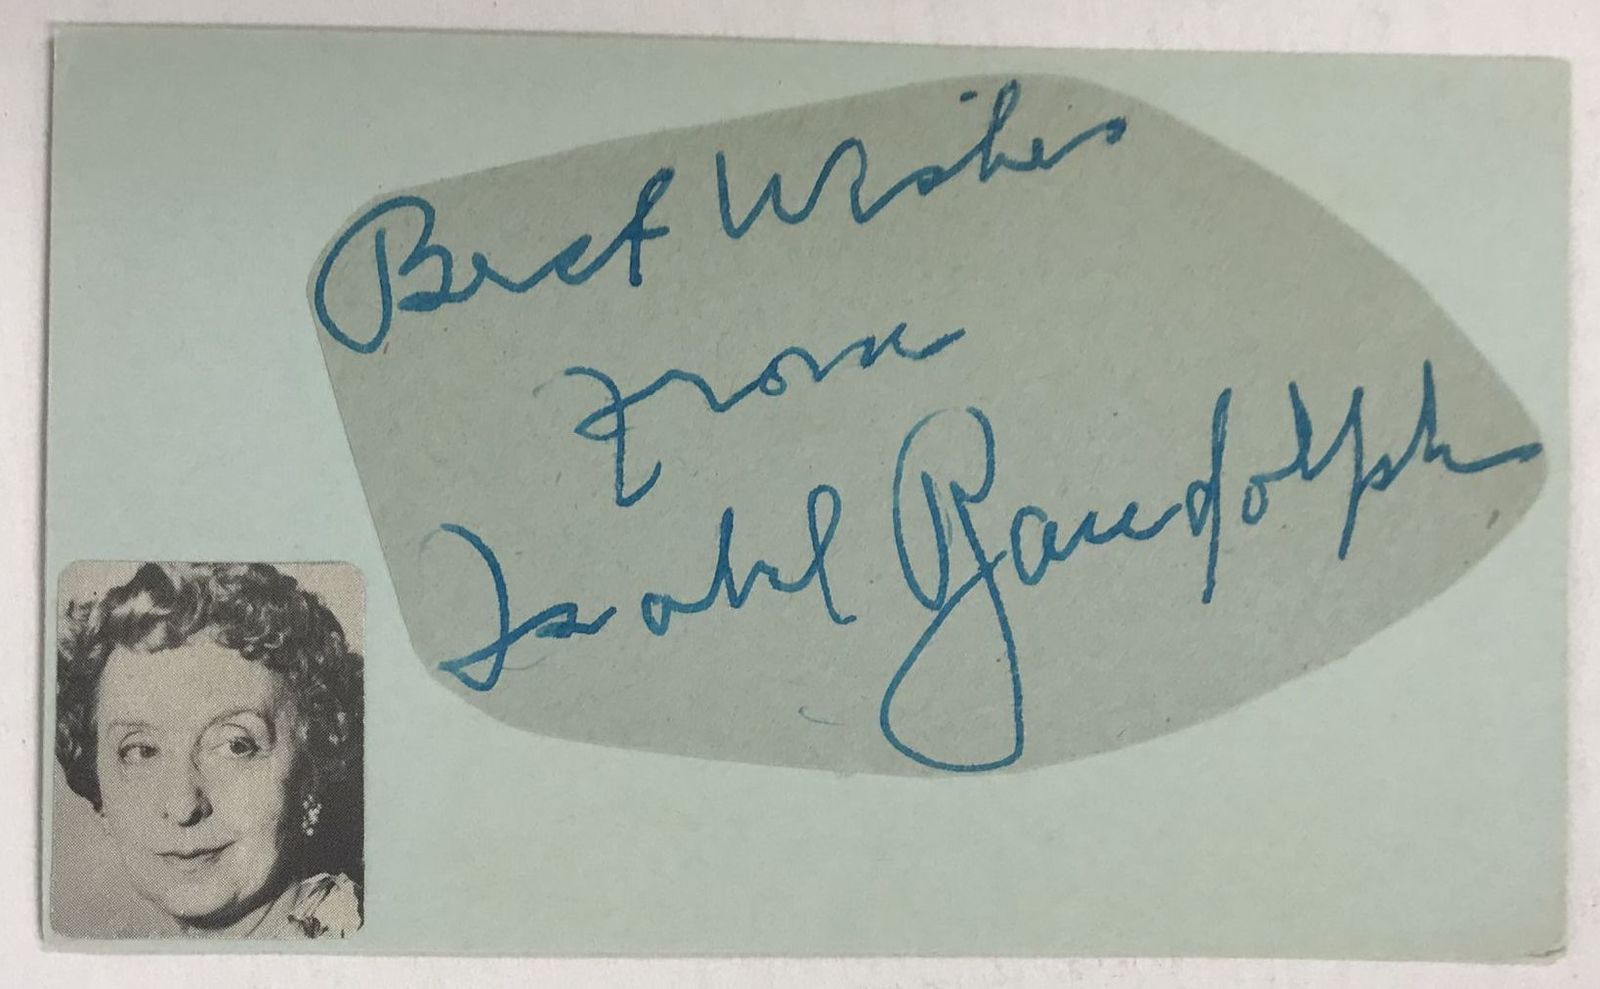 Best Wishes
from
Isabel Randolph